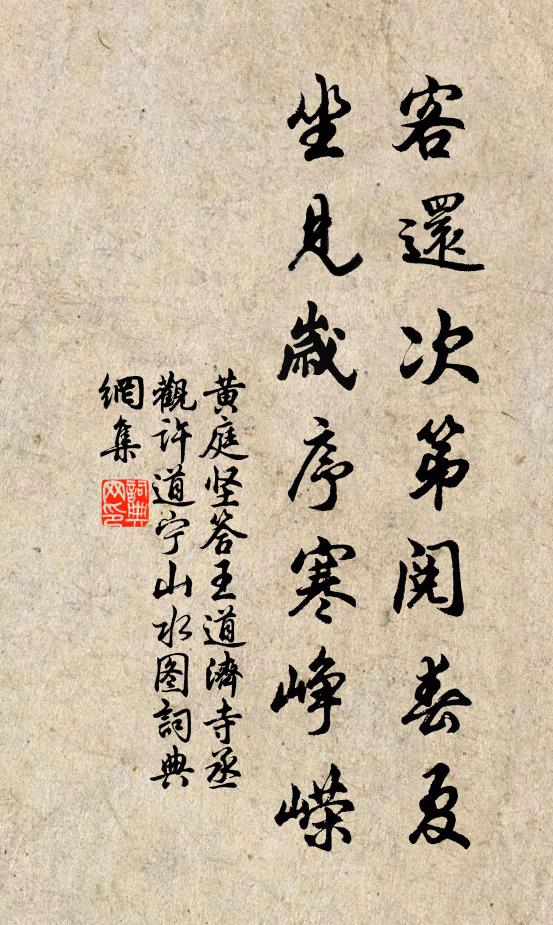 客還次第閱春夏
坐見歲序寒崢嶸
黃庭坚答王道濟寺丞
觀許道宁山水图詞典
網集
詞典網印